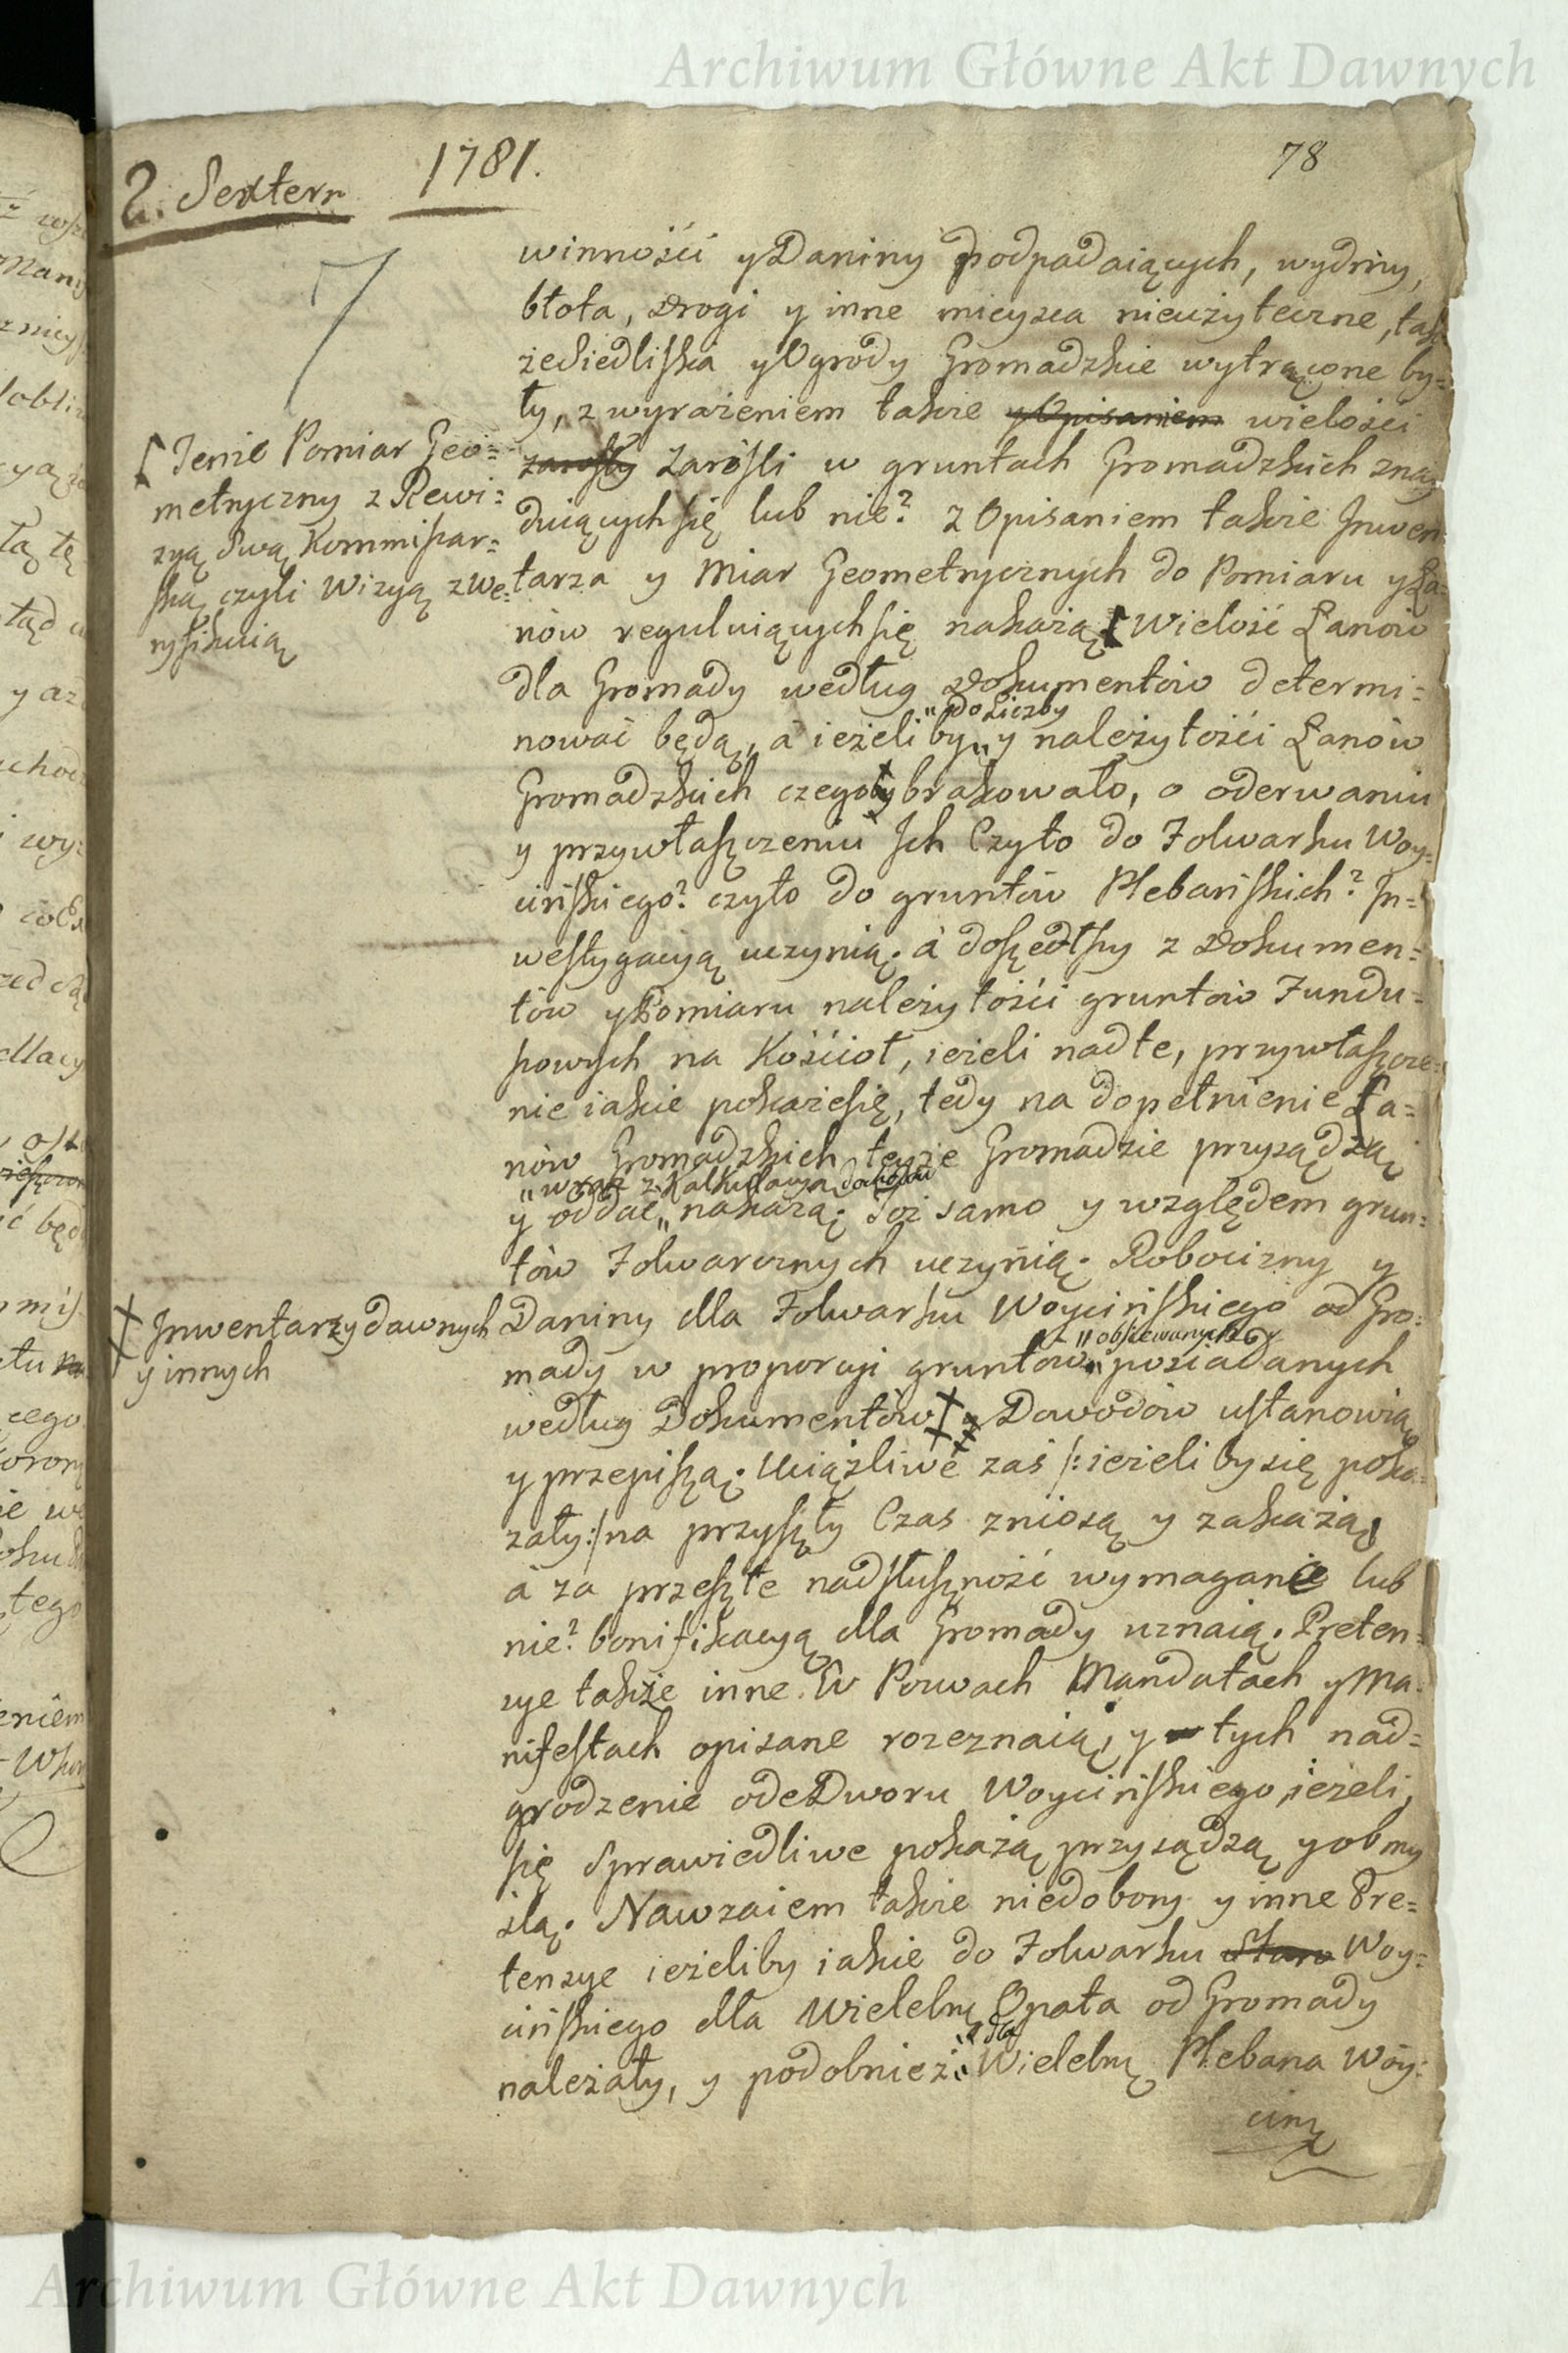 Archiwum Główne Akt Dawnych
2. Sextern 1781. 78
7
winnośći y Daniny podpadaiących, wydmy,
błota, drogi y inne mieysca nieużyteczne, tak
że Siedliska y Ogrody Gromadzkie wytrącone by=
ły, z wyrażeniem także y Opisaniem wielośći
zarosły Zarośli w gruntach Gromadzkich znay
duiących się lub nie? z Opisaniem także Inwen
tarza y Miar Geometrycznych do Pomiaru y Ła=
nów reguluiących się nakażą [ Wielość Łanów
dla Gromady według Dokumentów determi=
nować będą, à ieżeliby „ y należytośći Łanów
„do Liczby
Gromadzkich czegoby brakowało, o oderwaniu
y przywłaszczeniu Ich Czyto do Folwarku Woy=
cińskiego? czyto do gruntów Plebańskich? In=
westygacyą uczynią. à doszedłszy z Dokumen=
tów y Pomiaru należytośći gruntów Fundu=
szowych na Kośćioł, ieżeli nadte, przywłaszcze=
nie iakie pokaże się, tedy na dopełnienie Ła=
nów Gromadzkich teyże Gromadzie przysądzą
„wraz z Kalkulacyą dochodów
y oddać „ nakażą. Toż samo y względem grun=
tów Folwarcznych uczynią. Robocizny y
Daniny dla Folwarku Woycińskiego od Gro=
mady w proporcyi gruntów „ posiadanych
„obsiewanych y
według Dokumentów X y Dowodów ustanowią
y przepiszą. Uciążliwe zaś /: ieżeliby się poka=
zały :/ na przyszły Czas zniosą y zakażą,
à za przeszłe nad słuszność wymaganie lub
nie? bonifikacyą dla Gromady uznaią. Preten=
sye także inne W Pozwach Mandatach y Ma=
nifestach opisane rozeznaią, y tych nad=
grodzenie ode Dworu Woycińskiego, ieżeli,
się Sprawiedliwe pokażą przysądzą y obmy
ślą. Nawzaiem także niedobory y inne Pre=
tensye ieżeliby iakie do Folwarku Staro Woy=
cińskiego dla Wielebnę Opata od Gromady
należały, y podobnież „ Wielebnę Plebana Woy=
„dla
cinę
[ Tenże Pomiar Geo=
metryczny z Rewi=
zyą Swą Kommissar=
ską czyli Wizyą zwe=
ryfikuią
X Inwentarzy dawnych
y innych
Archiwum Główne Akt Dawnych